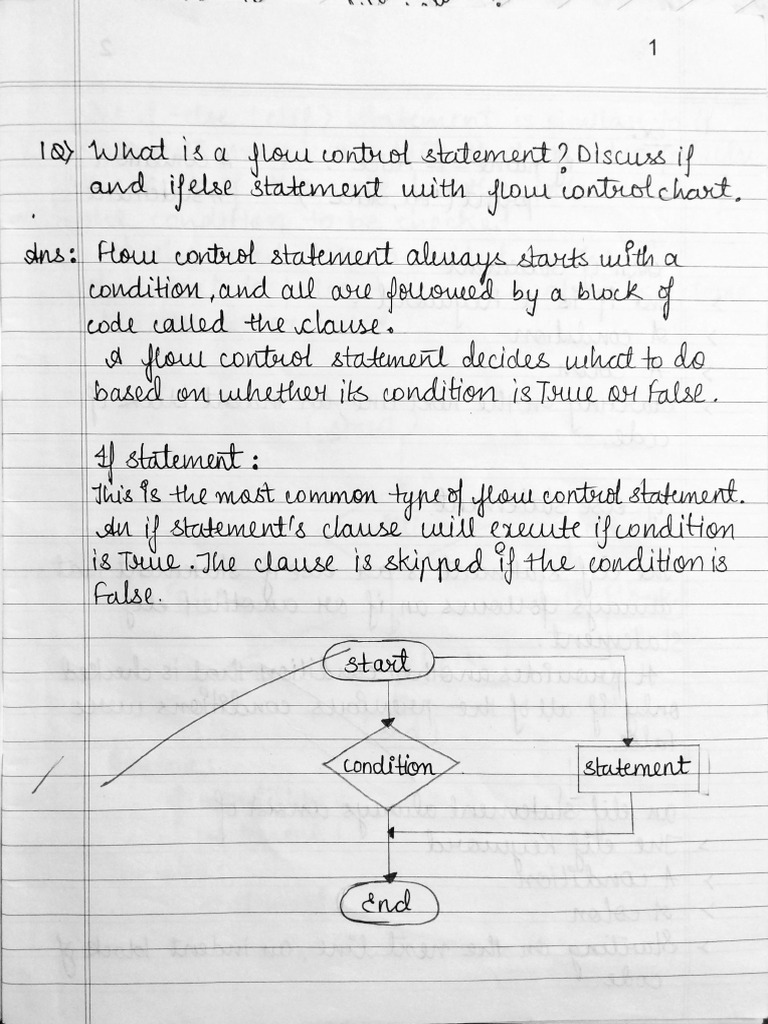 1
1Q> What is a flow control statement? Discuss if
and ifelse statement with flow control chart.
Ans: Flow control statement always starts with a
condition, and all are followed by a block of
code called the clause.
A flow control statement decides what to do
based on whether its condition is True or False.
If statement:
This is the most common type of flow control statement.
An if statement's clause will execute if condition
is True. The clause is skipped if the condition is
False.
start
condition
statement
End